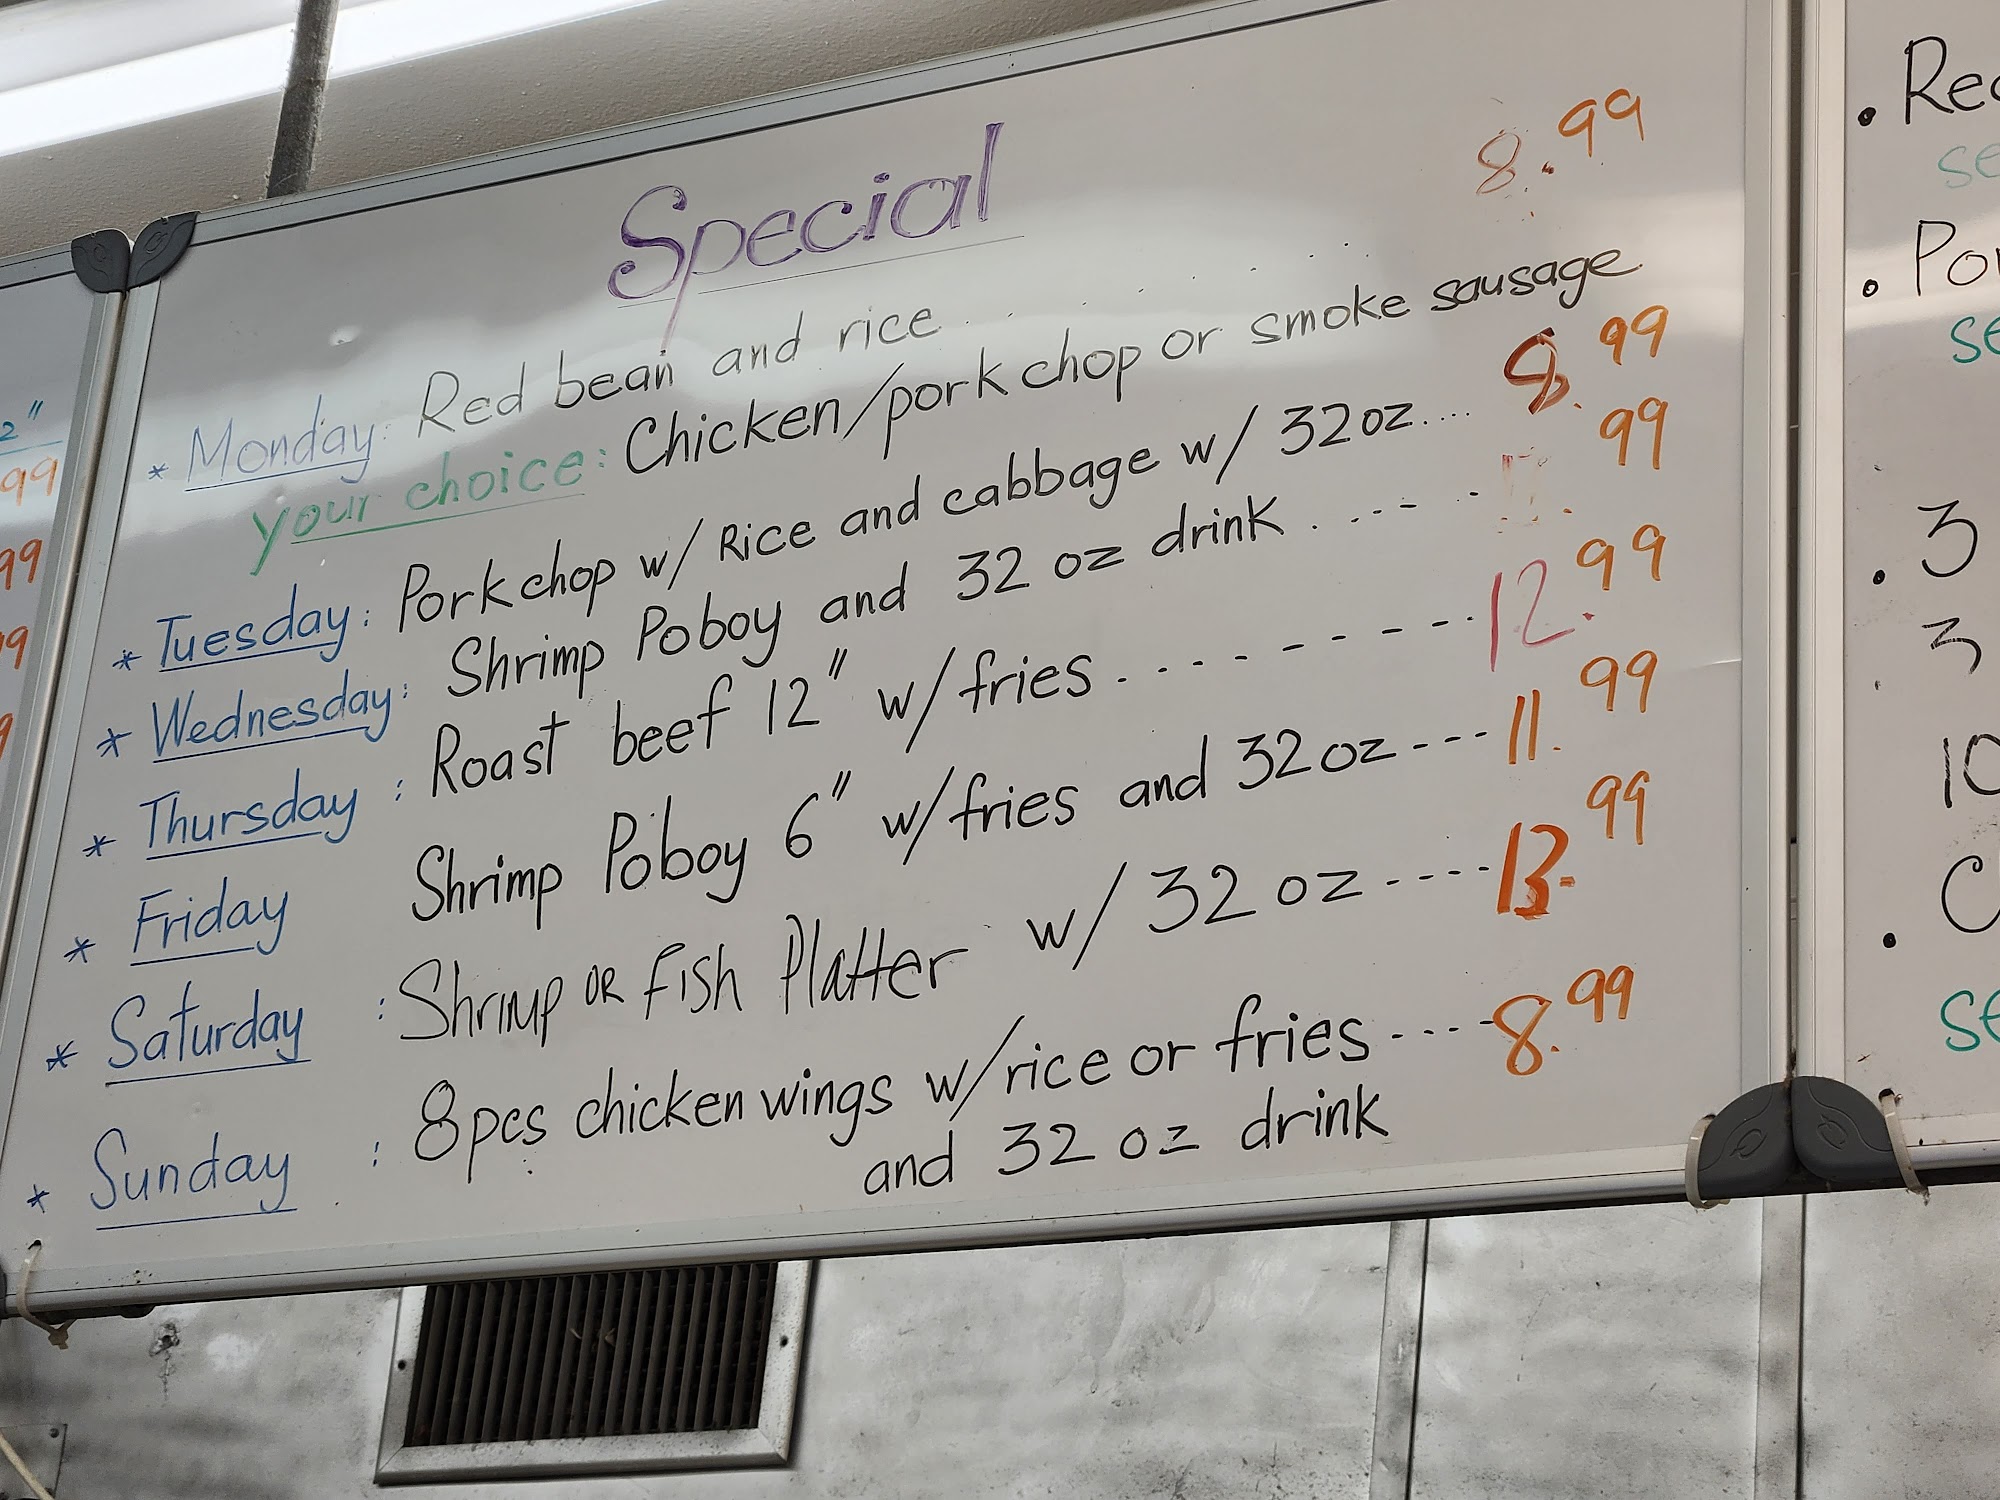 Special
* Monday: Red bean and rice .......... 8.99
your choice: Chicken/pork chop or smoke sausage
* Tuesday: Pork chop w/ Rice and cabbage w/ 32oz.... 8.99
* Wednesday: Shrimp Poboy and 32 oz drink ..---- .99
* Thursday: Roast beef 12" w/ fries .--------- 12.99
* Friday Shrimp Poboy 6" w/ fries and 32oz --- 11.99
* Saturday : Shrimp OR Fish Platter w/ 32 oz ---- 13.99
* Sunday : 8pcs chicken wings w/ rice or fries ---- 8.99
and 32 oz drink
2"
99
99
9
9
. Red
se
. Po
se
. 3
3
10
. C
se